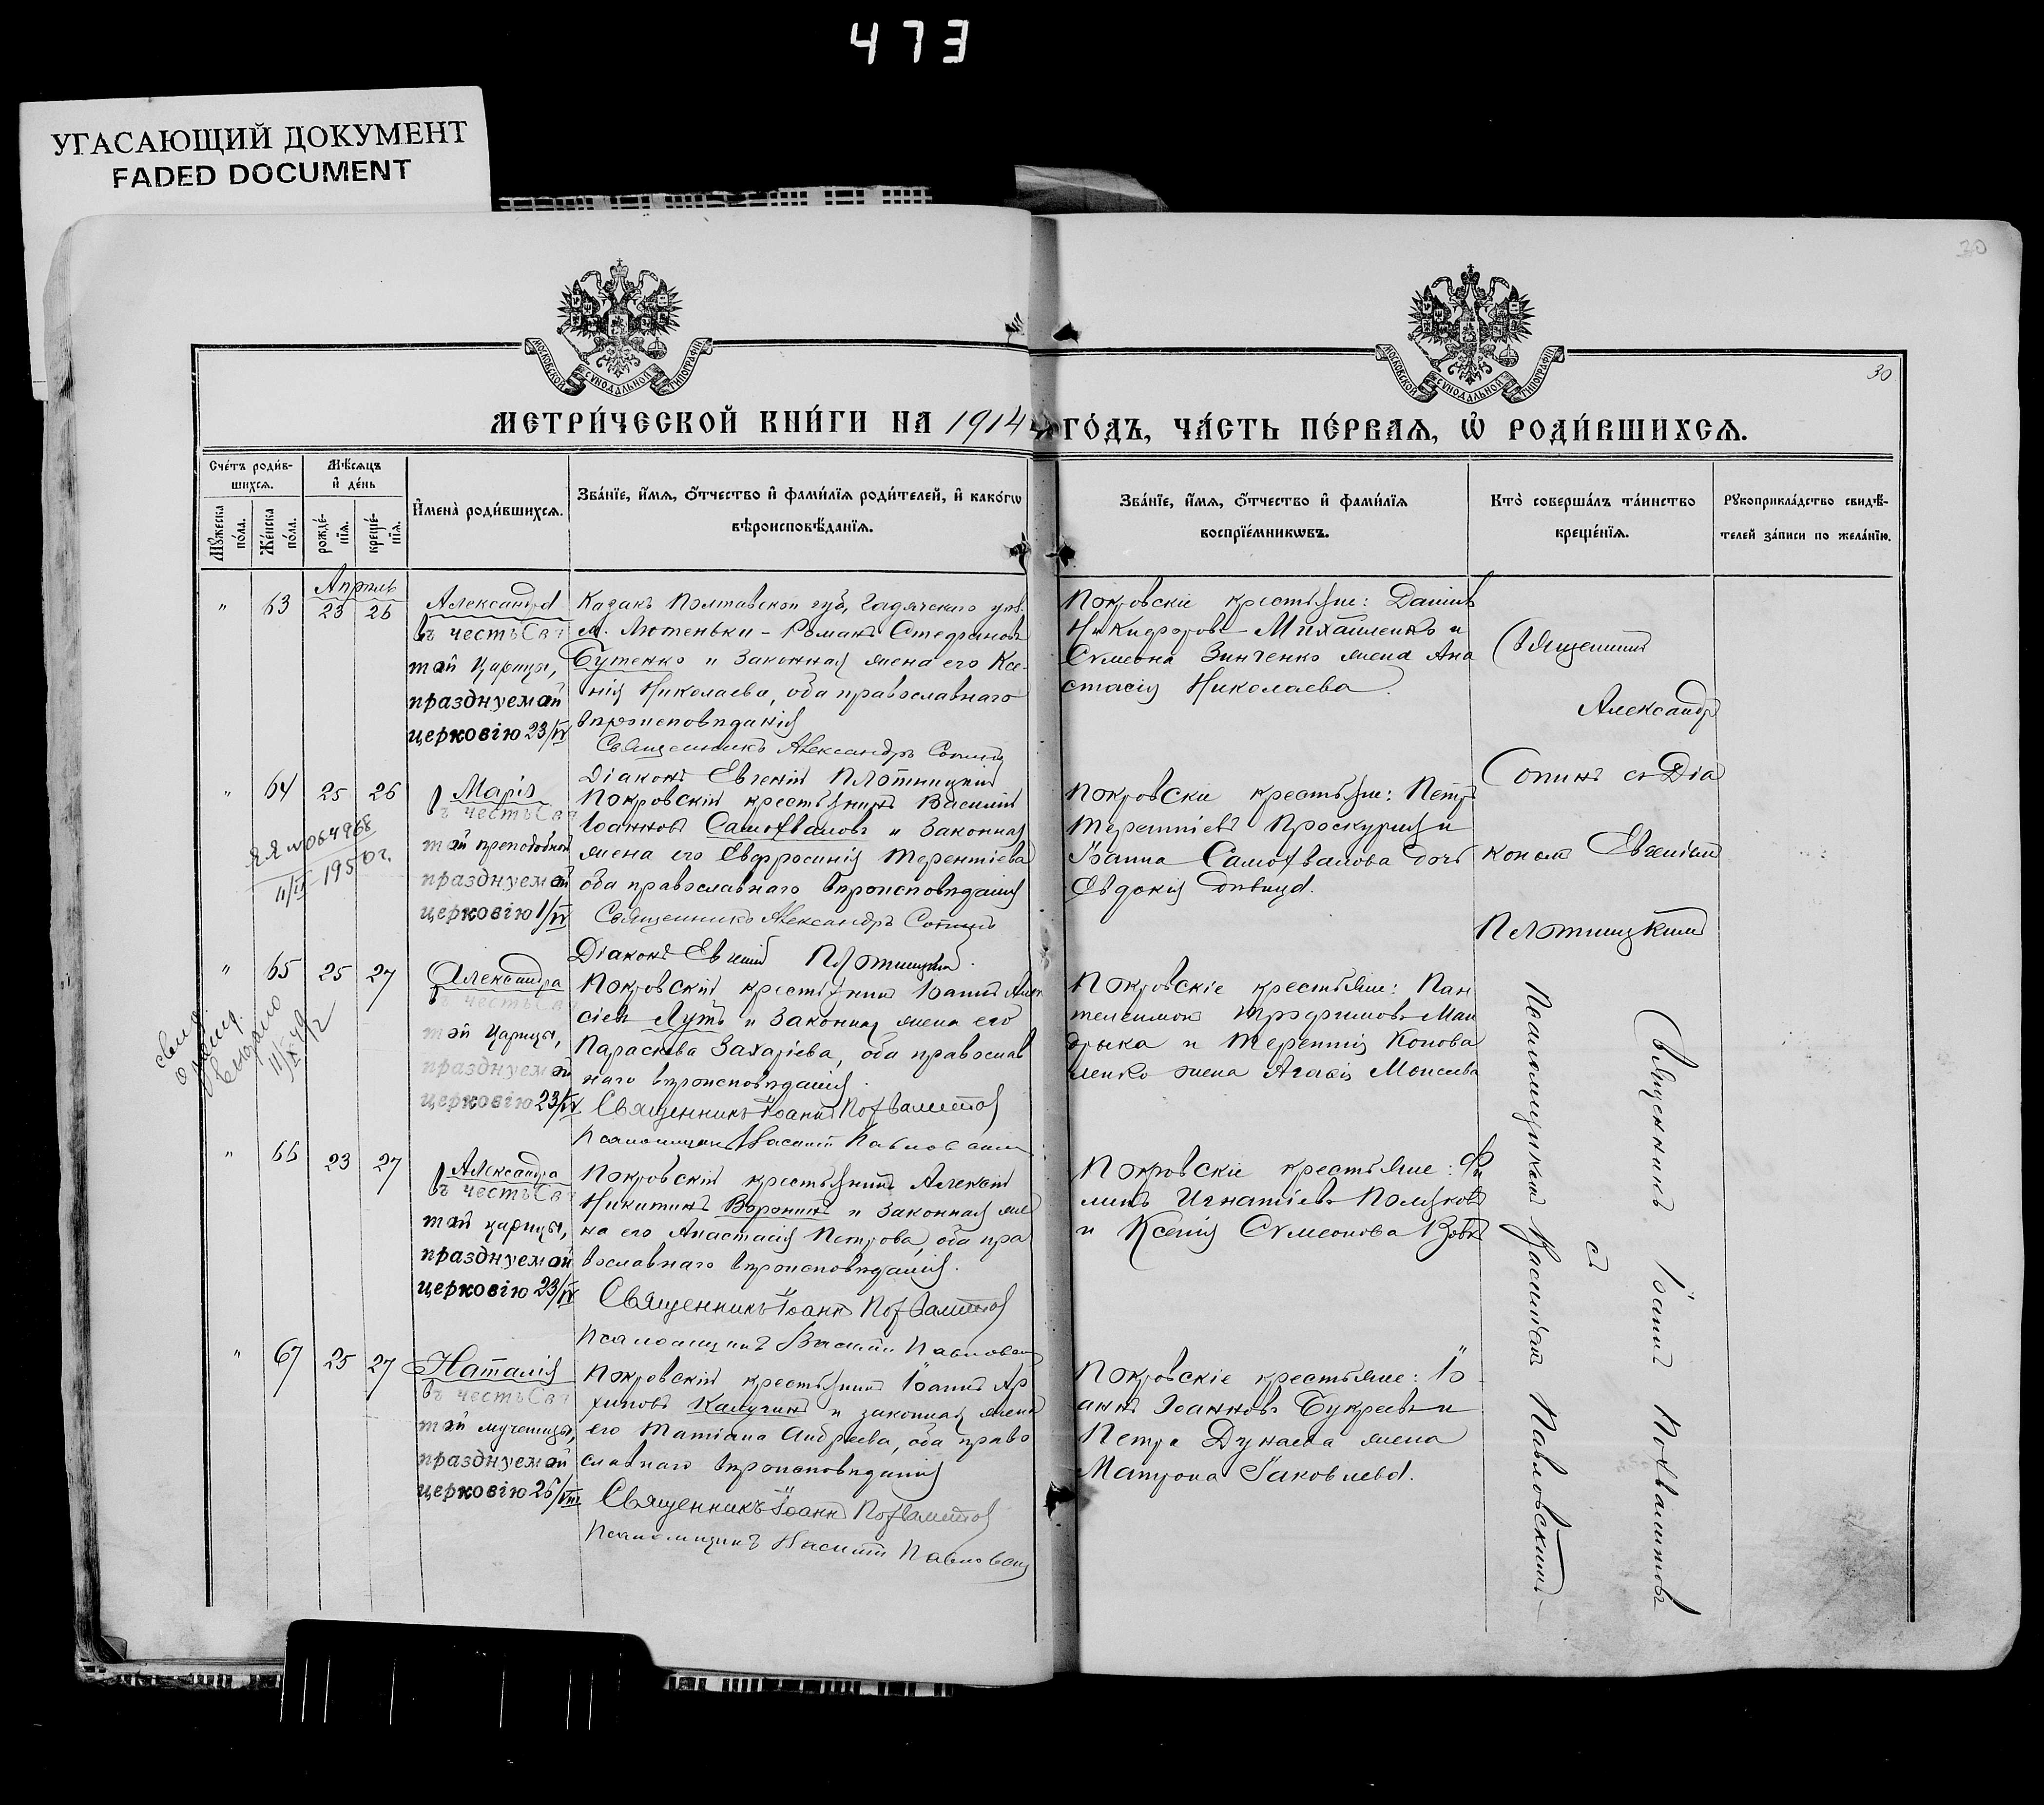 473
УГАСАЮЩИЙ ДОКУМЕНТ
FADED DOCUMENT
30
МОСКОВСКОЙ СѴНОДАЛЬНОЙ ТИПОГРАФІИ
МОСКОВСКОЙ СѴНОДАЛЬНОЙ ТИПОГРАФІИ
30
МЕТРИ́ЧЕСКОЙ КНИ́ГИ НА 1914
ГО́ДЪ, ЧА́СТЬ ПЕ́РВАѦ, Ѡ҆ РОДИ́ВШИХСѦ.
Сче́тъ роди́в-
шихсѧ.
Мѣ́сѧцъ
и҆ де́нь
Мꙋ́жеска
по́ла.
Же́нска
по́ла.
рожде́-
нїѧ.
креще́-
нїѧ.
И҆мена̀ роди́вшихсѧ.
Зва́нїе, и҆́мѧ, ѻ҆́тчество и҆ фами́лїѧ роди́телей, и҆ како́гѡ
вѣроисповѣ́данїѧ.
Зва́нїе, и҆́мѧ, ѻ҆́тчество и҆ фами́лїѧ
воспрїе́мникѡвъ.
Кто̀ соверша́лъ та́инство
креще́нїѧ.
Рꙋкоприкла́дство свидѣ́-
телей за́писи по жела́нїю.
Апрѣль
" 63 23 26
Александра
въ честь Свя
той Царицы,
празднуемой
церковію 23/IV
Казакъ Полтавской губ, Гадячскаго уѣз.
м. Лютеньки - Романъ Стефановъ
Бутенко и законная жена его Ксе-
нія Николаева, оба православнаго
вѣроисповѣданія
Священникъ Александръ Сопинъ
Діаконъ Евгеній Плотницкій
Покровскіе крестьяне: Даніилъ
Никифоровъ Михайленко и
Сѵмеона Зинченко жена Ана
стасія Николаева.
Священникъ
Александръ
Сопинъ съ Діа
кономъ Евгеніемъ
Плотницкимъ
" 64 25 26
Марія
въ честь Свя
той преподобной
празднуемой
церковію 1/IV
ЯЯ №064968
11/IV-1950г.
Покровскій крестьянинъ Василій
Іоанновъ Самохваловъ и законная
жена его Евфросинія Терентіева
оба православнаго вѣроисповѣданія
Священникъ Александръ Сопинъ
Діаконъ Евгеній Плотницкій.
Покровскіе крестьяне: Петръ
Терентіевъ Проскурня и
Іоанна Самохвалова дочь
Евдокія дѣвица.
" 65 25 27
Александра
въ честь Свя
той Царицы,
празднуемой
церковію 23/IV
Покровскій крестьянинъ Іоаннъ Алек
сіевъ Лутъ и законная жена его
Параскева Захаріева, оба православ
наго вѣроисповѣданія.
Священникъ Іоаннъ Похвалитовъ
Псаломщикъ Василій Павловскій
Покровскіе крестьяне: Пан
телеимонъ Трофимовъ Ман
дрыка и Терентія Конова
ленко жена Агафія Моисеева
Священникъ Іоаннъ Похвалитовъ
съ
Псаломщикомъ Василіемъ Павловскимъ
" 66 23 27
Александра
въ честь Свя
той царицы,
празднуемой
церковію 23/IV
Покровскій крестьянинъ Алексѣй
Никитинъ Воронинъ и законная же
на его Анастасія Петрова, оба пра
вославнаго вѣроисповѣданія.
Священникъ Іоаннъ Похвалитовъ
Псаломщикъ Василій Павловскій
Покровскіе крестьяне: Фи
липъ Игнатіевъ Поляковъ
и Ксенія Сѵмеонова
" 67 25 27
Наталія
въ честь Свя
той мученицы,
празднуемой
церковію 26/VIII
Покровскій крестьянинъ Іоаннъ Ар
хиповъ Калугинъ и законная жена
его Татіана Андреева, оба право
славнаго вѣроисповѣданія
Священникъ Іоаннъ Похвалитовъ
Псаломщикъ Василій Павловскій
Покровскіе крестьяне: Іо
аннъ Іоанновъ Букреевъ и
Петра Дунаева жена
Матрона Іаковлева.